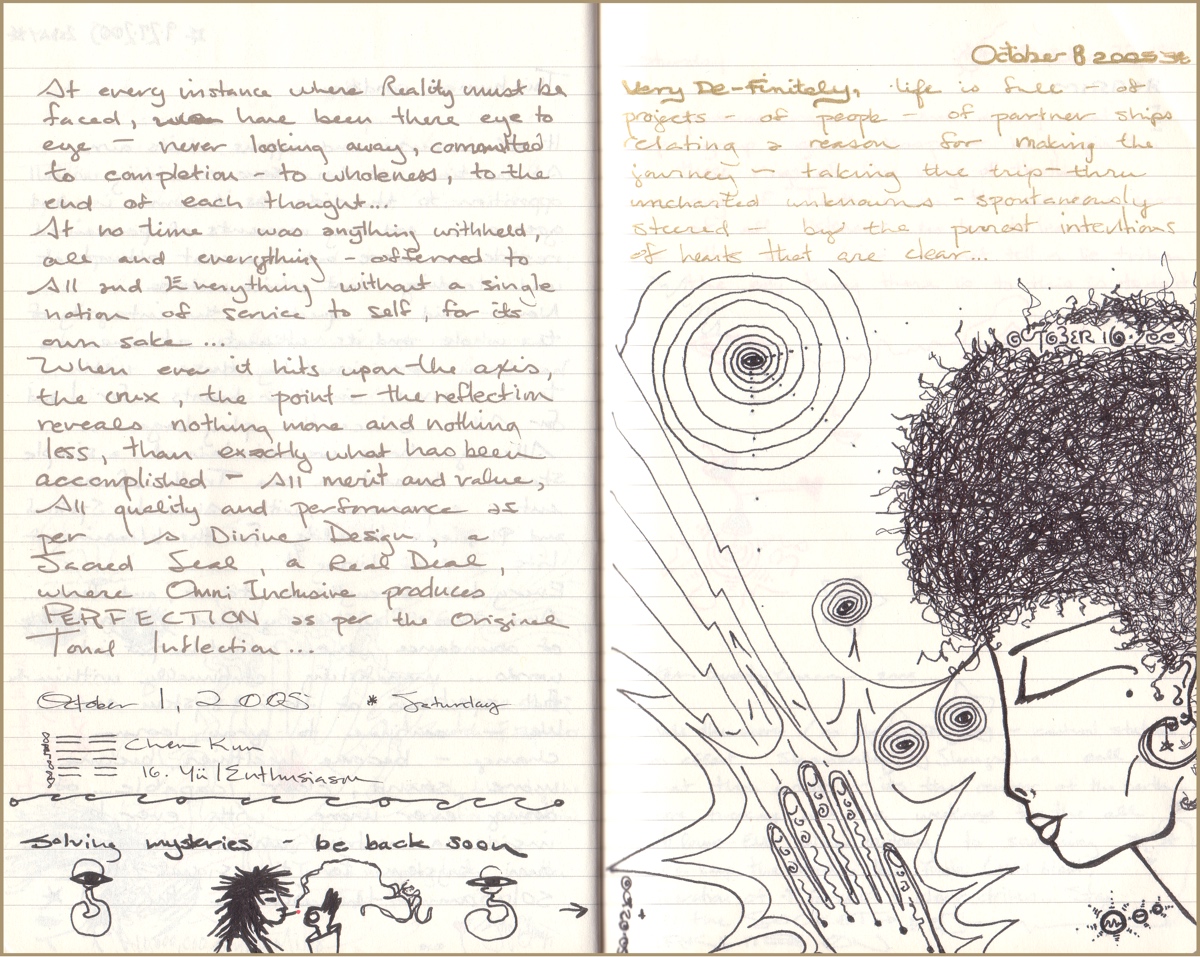 At every instance where Reality must be
faced, have been there eye to
eye – never looking away, committed
to completion – to wholeness, to the
end of each thought...
At no time was anything withheld,
all and everything – offerred to
All and Everything without a single
notion of service to self, for its
own sake ...
When ever it hits upon the axis,
the crux, the point – the reflection
reveals nothing more and nothing
less, than exactly what has been
accomplished – All merit and value,
All quality and performance as
per Divine Design, a
Sacred Seal, a Real Deal,
where Omni Inclusive produces
PERFECTION as per the Original
Tonal Inflection...
October 1, 2005 * Saturday
Chen Kun
16. Yü / Enthusiasm
Solving mysteries – be back soon
October 8 2005
Very De-finitely, life is full – of
projects – of people – of partner ships
relating a reason for making the
journey – taking the trip – thru
uncharted unknowns – spontaneously
steered – by the purest intentions
of hearts that are clear...
OCTOBER 16